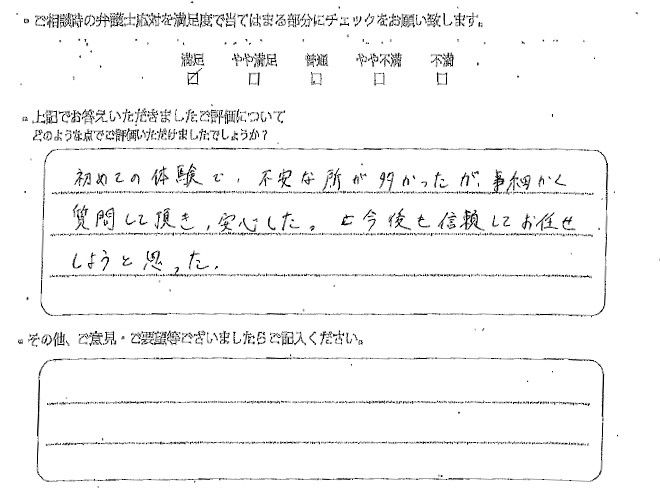 ご相談時の弁護士応対を満足度で当てはまる部分にチェックをお願い致します。
満足 やや満足 普通 やや不満 不満
☑ □ □ □ □
上記でお答えいただきましたご評価について
どのような点でご評価いただけましたでしょうか？
初めての体験で、不安な所が多かったが、事細かく
質問して頂き、安心した。今後も信頼してお任せ
しようと思った。
その他、ご意見・ご要望等ございましたらご記入ください。